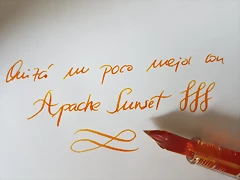 Quizá un poco mejor con
Apache Sunset